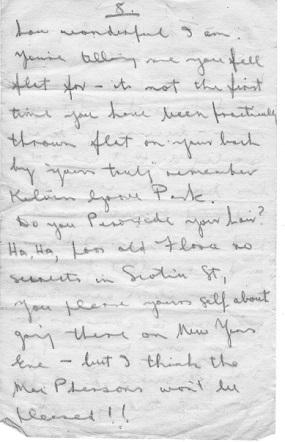 8.
how wonderful I am.
You're telling me you fell
flat for – its not the first
time you have been practically
thrown flat on your back
by "yours truly" remember
Kelvin Grove Park.
Do you Peroxide your hair?
Ha, Ha, poor old Flora no
secrets in Scotia St,
You please yourself about
going there on New Years
Eve – but I think the
MacPhersons won't be
pleased!!